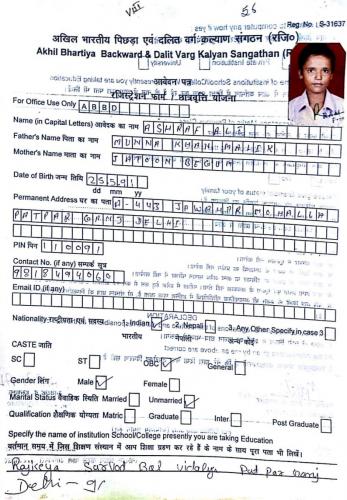 VIII
56
Reg. No.: LS-31637
अखिल भारतीय पिछड़ा एवं दलित वर्ग कल्याण संगठन (रजि०
Akhil Bhartiya Backward & Dalit Varg Kalyan Sangathan (R
आवेदन/पत्र
रजिस्ट्रेशन फॉर्म / छात्रवृत्ति योजना
For Office Use Only A B B D
Name (in Capital Letters) आवेदक का नाम ASHRAF ALI
Father's Name पिता का नाम MUNNA KHAN MALIK
Mother's Name माता का नाम JATOON BEGUM
Date of Birth जन्म तिथि 25591
dd mm yy
Permanent Address घर का पता A-443 JAWAHAR MOHALLA
PATPAR GANJ DELHI
PIN पिन 110091
Contact No. (if any) सम्पर्क सूत्र
9818494060
Email ID (if any)
Nationality-राष्ट्रीयता एवं सदस्य 1. Indian ✓ 2. Nepali 3. Any Other Specify in case 3
भारतीय नेपाली अन्य कोई
CASTE जाति
SC ST OBC ✓ General
Gender लिंग Male ✓ Female
Marital Status वैवाहिक स्थिति Married Unmarried ✓
Qualification शैक्षणिक योग्यता Matric Graduate Inter Post Graduate
Specify the name of institution School/College presently you are taking Education
वर्तमान समय में जिस शिक्षण संस्थान में आप शिक्षा ग्रहण कर रहे हैं के नाम के साथ पूरा पता भी लिखें।
Rajkeya Sarvod Bal
Delhi-91